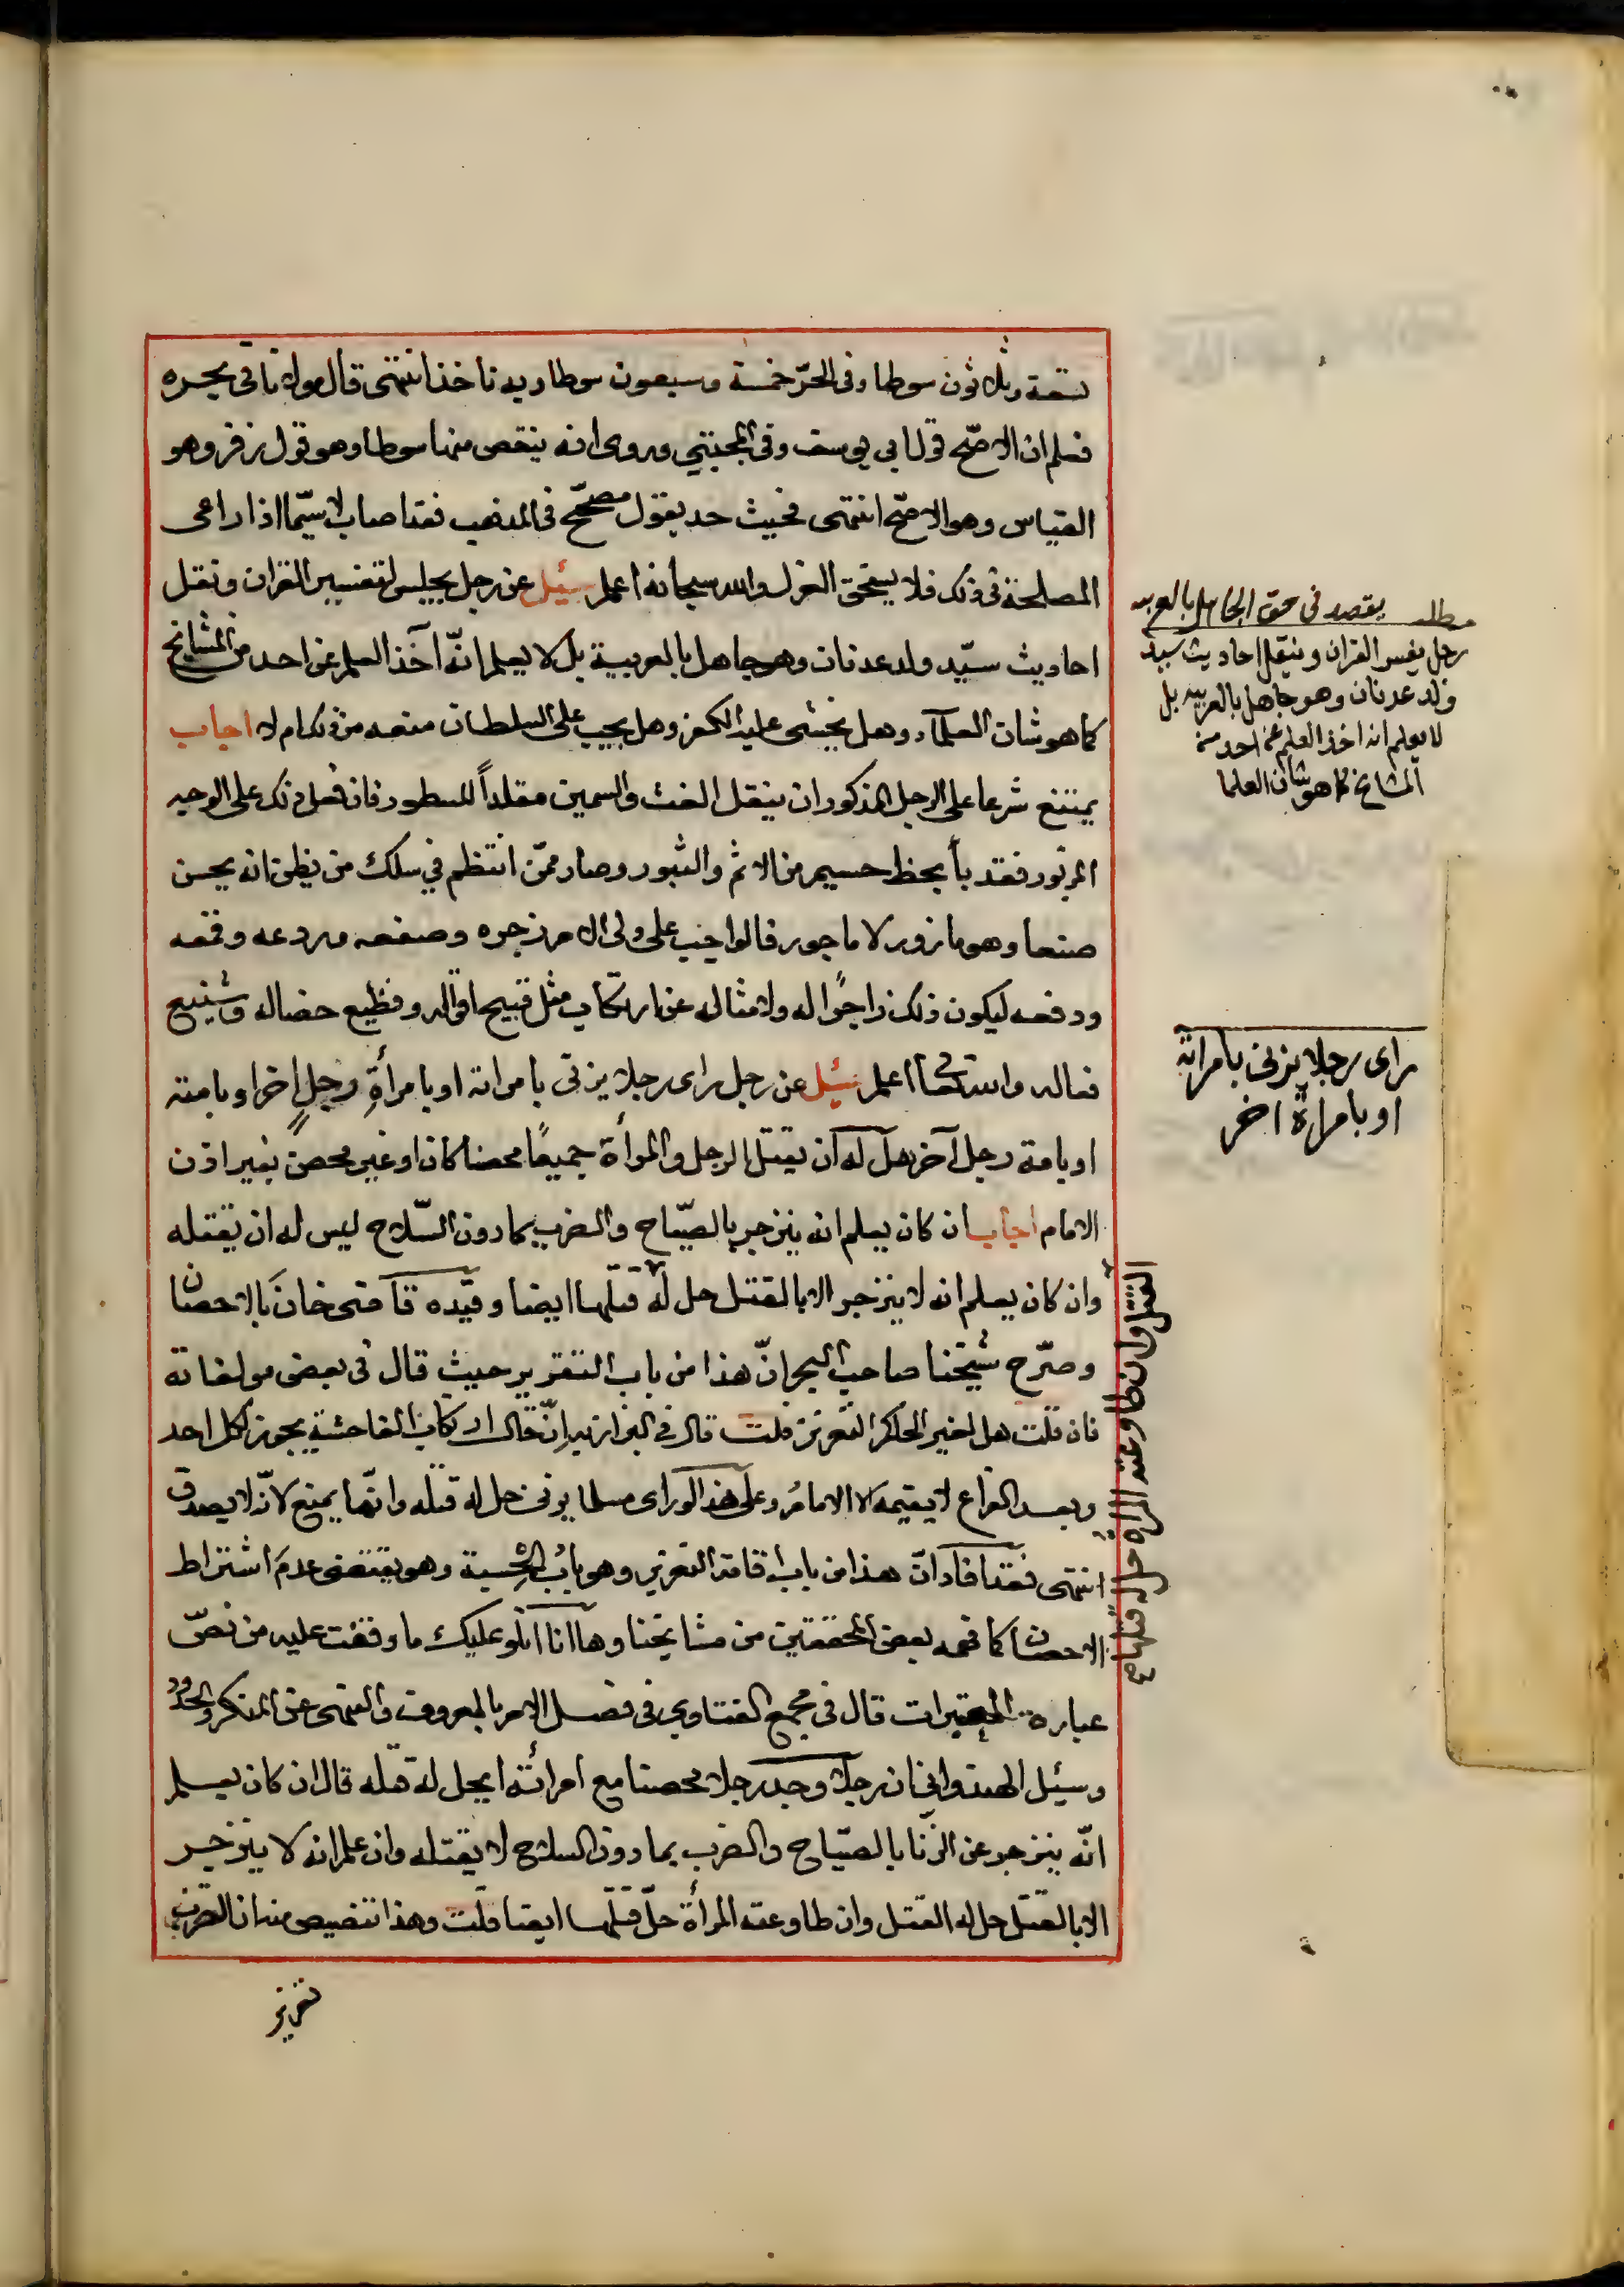 تسعة وثلاثون سوطا وفى الحرّ خمسة وسبعون سوطا وبه ناخذ انتهى قال مولانا فى بحره
فعلم ان الاصحّ قول ابى يوسف وفى المجتبى وروى انه ينقص منها سوطا وهو قول زفر وهو
القياس وهو الاصحّ انتهى فحيث حد بقول مصحّح فى المذهب فقد اصاب لا سيّما اذا راعى
المصلحة فى ذلك فلا يستحق العزل والله سبحانه اعلم سئيل عن رجل يجلس لتفسير القران ونقل
احاديث سيّد ولد عدنان وهو جاهل بالعربية بل لا يعلم انّه آخذ العلم عن احد من المشايخ
كما هو شان العلمآء وهل يخشى عليه الكفر وهل يجب على السلطان منعه من ذلك ام لا اجاب
يمتنع شرعا على الرجل المذكور ان ينقل الغث والسمين مقلداً للسطور فان فعل ذلك على الوجه
المزبور فقد بأ بحظ جسيم من الاثم والثبور وصار ممّن انتظم في سلك من يظن انه يحسن
صنعا وهو مازور لا ماجور فالواجب على ولى الامر زجره وصفعه وردعه وقمعه
ودفعه ليكون ذلك زاجرًا له ولامثاله عن ارتكاب مثل قبيح اقواله وفظيع خصاله وشنيع
فعاله والله تعالى اعلم سئيل عن رجل راى رجلا يزنى بامراته او بامرأةِ رجلٍ اخر او بامته
او بامة رجل آخر هل له ان يقتل الرجل والمرأة جميعًا محصنا كان او غير محصن بغير اذن
الامام اجاب ان كان يعلم انه ينزجر بالصيّاح والضرب بما دون السّلاح ليس له ان يقتله
وان كان يعلم انه لا ينزجر الا بالقتل حل له قتلها ايضا وقيّده قاضى خان بالاحصان
وصرّح شيخنا صاحب البحر انّ هذا من باب التعزير حيث قال فى بعض مولفاته
فان قلت هل لغير الحاكم التعزير قلت قال فى البزازيه انّ حال ارتكاب الفاحشة يجوز لكل احد
وبعد الفراغ لا يقيمه الا الامامُ وعلى هذا لو راى مسلما يزنى حل له قتله وانّما يمنع لانّه لا يصدق
انتهى فقد افاد انّ هذا من باب اقامة التعزير وهو بابُ الحِسبة وهو يقتضى عدمَ اشتراط
الاحصان كما فهمه بعض المحققين من مشايخنا وها انا اتلو عليك ما وقفت عليه من نصّ
عبارة المعتبرات قال فى مجمع الفتاوي فى فصل الامر بالمعروف والنهى عن المنكر والحدود
وسئيل الهندوانى ان رجلا وجد رجلا محصنا مع امرأته ايحل له قتله قال ان كان يعلم
انّه ينزجر عن الزّنا بالصيّاح والضرب بما دون السلاح لا يقتله وان علم انه لا ينزجر
الا بالقتل حل له القتل وان طاوعته المرأة حلّ قتلها ايضا قلت وهذا تنصيص منه ان الضرب
تعزير
مطلب يقصد فى حق الجاهل بالعربيه
رجل يفسر القران وينقل احاديث سيد
ولد عدنان وهو جاهل بالعربيه بل
لا يعلم انه اخذ العلم عن احد من
المشايخ كما هو شان العلما
راى رجلا يزنى بامراته
او بامراة اخر
القتل وان طاوعته المراة حل له قتلها صح